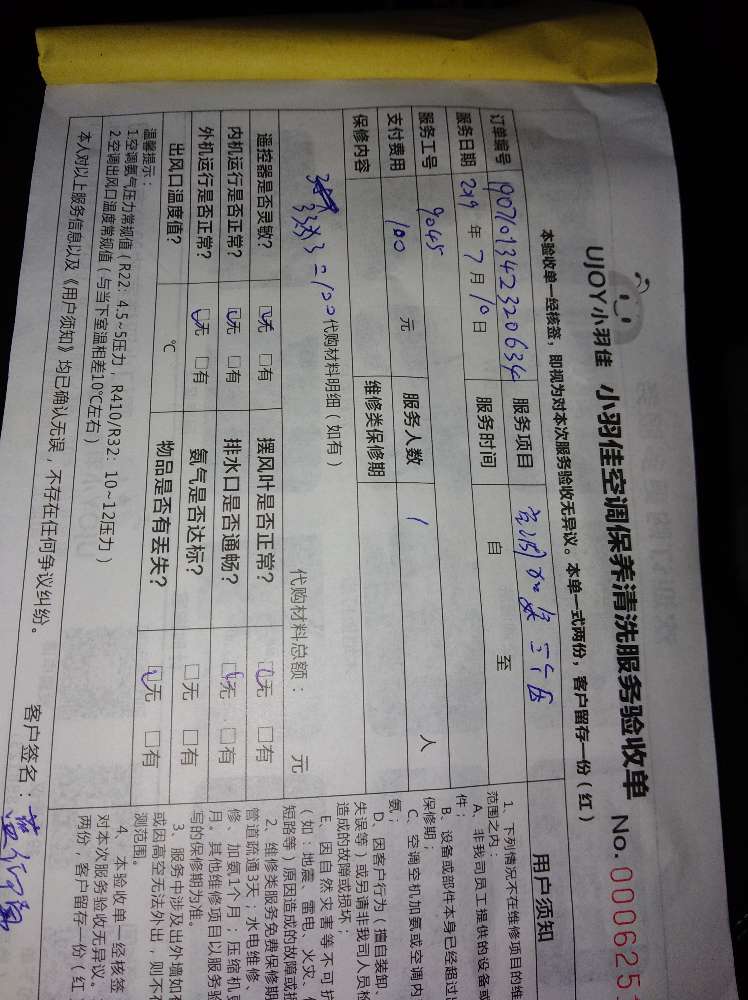 UJOY小羽佳 小羽佳空调保养清洗服务验收单 No.0006251
本验收单一经核签，即视为对本次服务验收无异议。本单一式两份，客户留存一份（红）
订单编号 1907101342320634 服务项目 空调加氨 三个压
服务日期 2019 年 7 月 10 日 服务时间 自 至
服务工号 9045 服务人数 1 人
支付费用 100 元 维修类保修期
保修内容
33×3=100 代购材料明细（如有） 代购材料总额： 元
遥控器是否灵敏？ □无 □有 摆风叶是否正常？ □无 □有
内机运行是否正常？ □无 □有 排水口是否通畅？ □无 □有
外机运行是否正常？ □无 □有 氨气是否达标？ □无 □有
出风口温度值？ ℃ 物品是否有丢失？ □无 □有
温馨提示：
1.空调氨气压力常规值（R22：4.5~5压力，R410/R32：10~12压力）
2.空调出风口温度常规值（与当下室温相差10℃左右）
本人对以上服务信息以及《用户须知》均已确认无误，不存在任何争议纠纷。
客户签名：
用户须知
1、下列情况不在维修项目的维
范围之内：
A、非我司员工提供的设备或
件；
B、设备或部件本身已经超过
保修期；
C、空调空机加氨或空调内
氨；
D、因客户行为（擅自装卸
失误等）或另请非我司人员检
造成的故障或损坏；
E、因自然灾害等不可抗
（如：地震、雷电、火灾、
短路等）原因造成的故障或损
2、维修类服务免费保修期
管道疏通3天；水电维修、
修、加氨1个月；压缩机
月。其他维修项目以服务验
写的保修期为准。
3、服务中涉及出外墙如有
或因高空无法外出，则不在
测范围。
4、本验收单一经核签
对本次服务验收无异议。
两份，客户留存一份（红